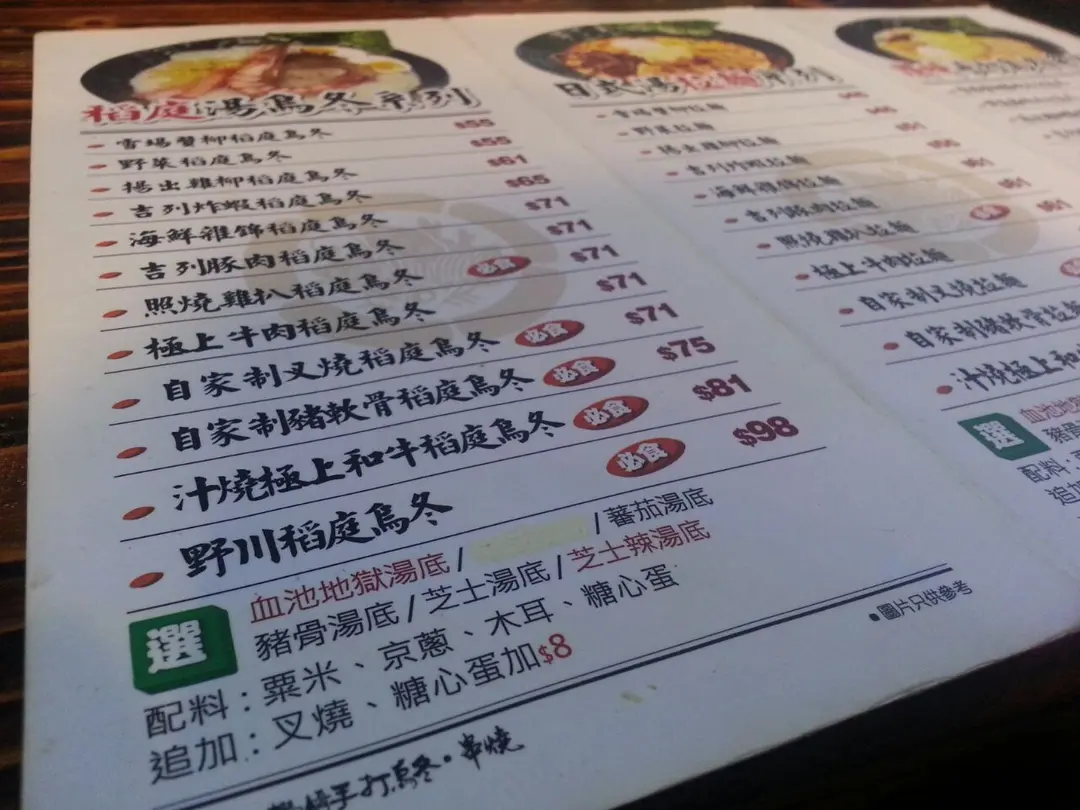 稻庭湯烏冬系列
雪場蟹柳稻庭烏冬 $55
野菜稻庭烏冬 $55
揚出雞柳稻庭烏冬 $61
吉列炸蝦稻庭烏冬 $65
海鮮雜錦稻庭烏冬 $71
吉列豚肉稻庭烏冬 $71
照燒雞扒稻庭烏冬 必食 $71
極上牛肉稻庭烏冬 $71
自家制叉燒稻庭烏冬 必食 $71
自家制豬軟骨稻庭烏冬 必食 $75
汁燒極上和牛稻庭烏冬 必食 $81
野川稻庭烏冬 必食 $98
選 血池地獄湯底 / / 蕃茄湯底
豬骨湯底 / 芝士湯底 / 芝士辣湯底
配料：粟米、京蔥、木耳、糖心蛋
追加：叉燒、糖心蛋加$8
•圖片只供參考
手打烏冬•串燒
日式湯拉麵系列
雪場蟹柳拉麵
野菜拉麵
揚出雞柳拉麵
吉列炸蝦拉麵
海鮮雜錦拉麵
吉列豚肉拉麵
照燒雞扒拉麵
極上牛肉拉麵
自家制叉燒拉麵
自家制豬軟骨拉
汁燒極上和
選 血池地
豬骨
配料：
追加